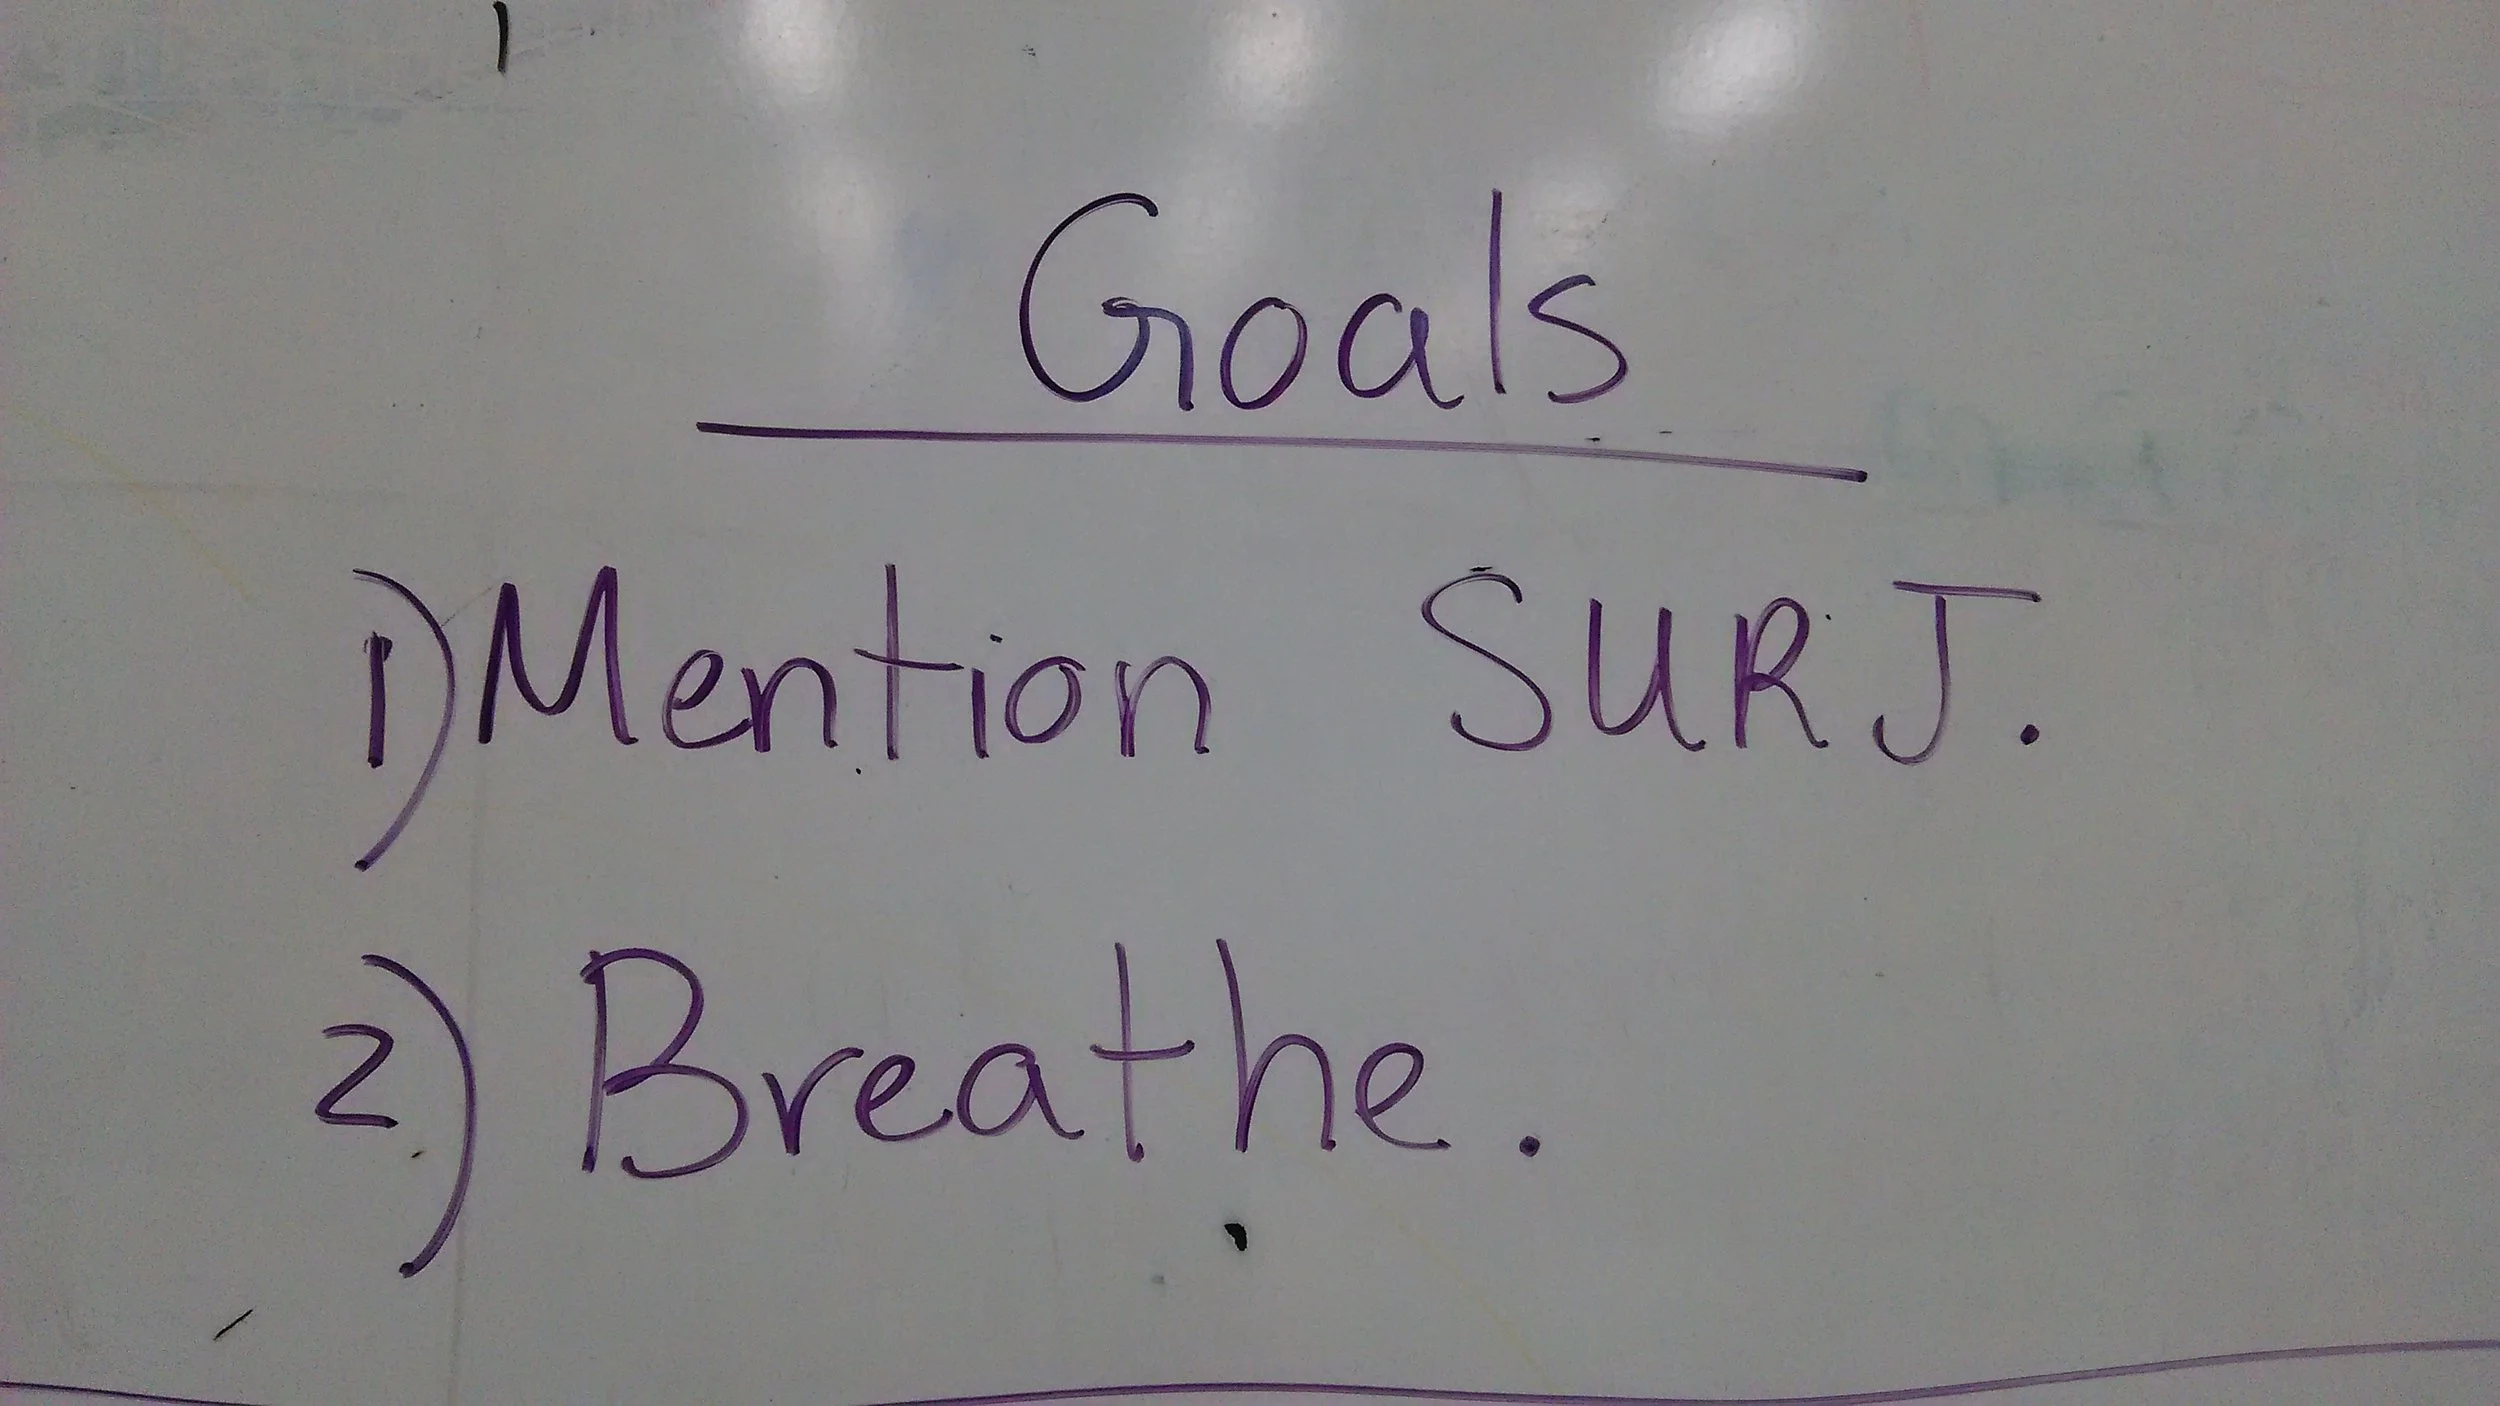 Goals
1) Mention SURJ.
2) Breathe.